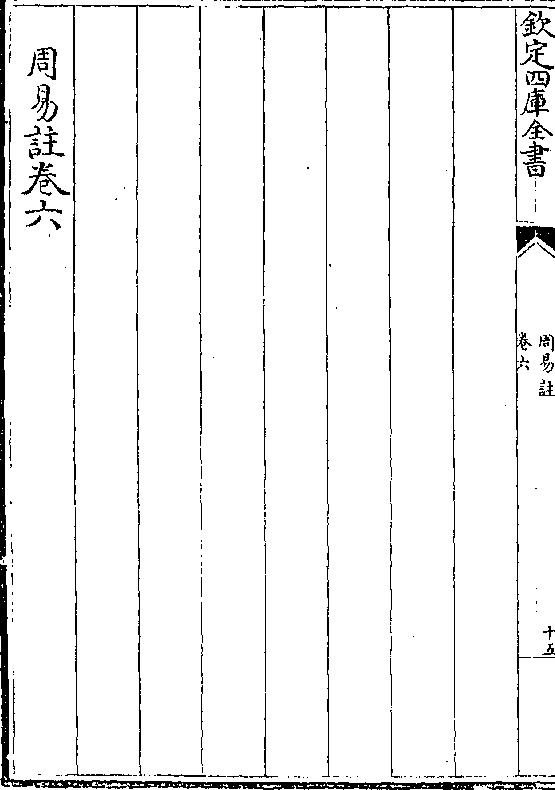 欽定四庫全書
周易註
卷六
十五
周易註卷六